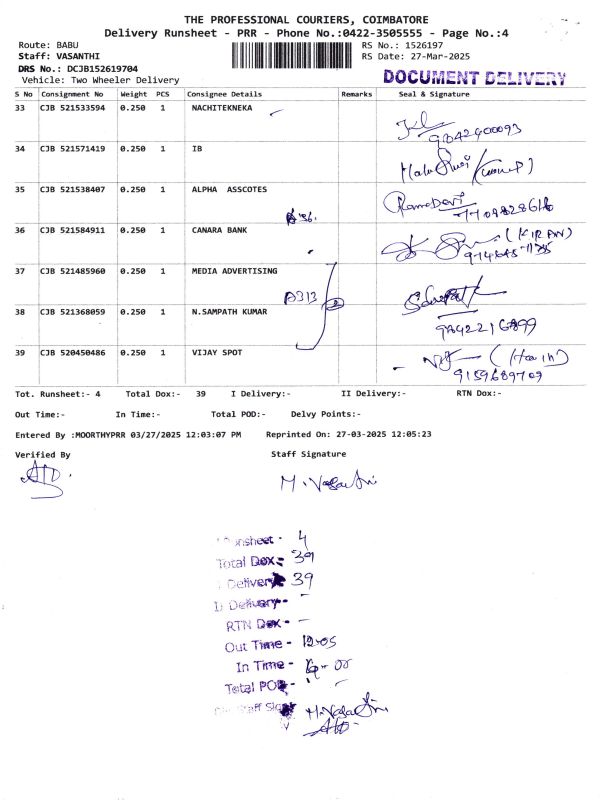 THE PROFESSIONAL COURIERS, COIMBATORE
Delivery Runsheet - PRR - Phone No.:0422-3505555 - Page No.:4
Route: BABU RS No.: 1526197
Staff: VASANTHI RS Date: 27-Mar-2025
DRS No.: DCJB152619704
Vehicle: Two Wheeler Delivery
DOCUMENT DELIVERY
S No Consignment No Weight PCS Consignee Details Remarks Seal & Signature
33 CJB 521533594 0.250 1 NACHITEKNEKA
9842400093
34 CJB 521571419 0.250 1 IB
35 CJB 521538407 0.250 1 ALPHA ASSCOTES
RamaDevi
36 CJB 521584911 0.250 1 CANARA BANK
(KIRAN)
37 CJB 521485960 0.250 1 MEDIA ADVERTISING
38 CJB 521368059 0.250 1 N.SAMPATH KUMAR
39 CJB 520450486 0.250 1 VIJAY SPOT
9159689709
Tot. Runsheet:- 4 Total Dox:- 39 I Delivery:- II Delivery:- RTN Dox:-
Out Time:- In Time:- Total POD:- Delvy Points:-
Entered By :MOORTHYPRR 03/27/2025 12:03:07 PM Reprinted On: 27-03-2025 12:05:23
Verified By Staff Signature
M. Vasanthi
Runsheet - 4
Total Dox - 39
I Delivery - 39
II Delivery - -
RTN Dox - -
Out Time - 12-05
In Time - 4-00
Total POD - -
M. Vasanthi